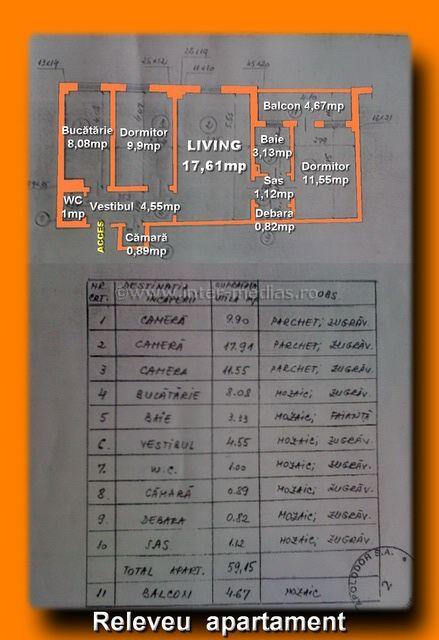 13x19
25x12
25x19
11x10
45x20
Balcon 4,67mp
Bucătărie
8,08mp
Dormitor
9,9mp
LIVING
17,61mp
Baie
3,13mp
Dormitor
11,55mp
Sas
1,12mp
WC
1mp
Vestibul 4,55mp
Debara
0,82mp
ACCES
Cămară
0,89mp
NR. CRT. DESTINAȚIA ÎNCĂPERII SUPRAFAȚA UTILĂ OBS
©www.inter-medias.ro
1 CAMERĂ 9.90 PARCHET; ZUGRĂV.
2 CAMERĂ 17.91 PARCHET; ZUGRĂV.
3 CAMERA 11.55 PARCHET, ZUGRĂV.
4 BUCĂTĂRIE 8.08 MOZAIC; ZUGRĂV.
5 BAIE 3.33 MOZAIC, FAIANȚĂ
6. VESTIBUL 4.55 MOZAIC; ZUGRĂV.
7. W.C. 1.00 MOZAIC; ZUGRĂV.
8. CĂMARĂ 0.89 MOZAIC; ZUGRĂV.
9. DEBARA 0.82 MOZAIC; ZUGRĂV.
10 SAS. 1.12 MOZAIC; ZUGRĂV.
TOTAL APART. 59,15
11 BALCON 4.67 MOZAIC
APOLODOR S.A.
2
Releveu apartament